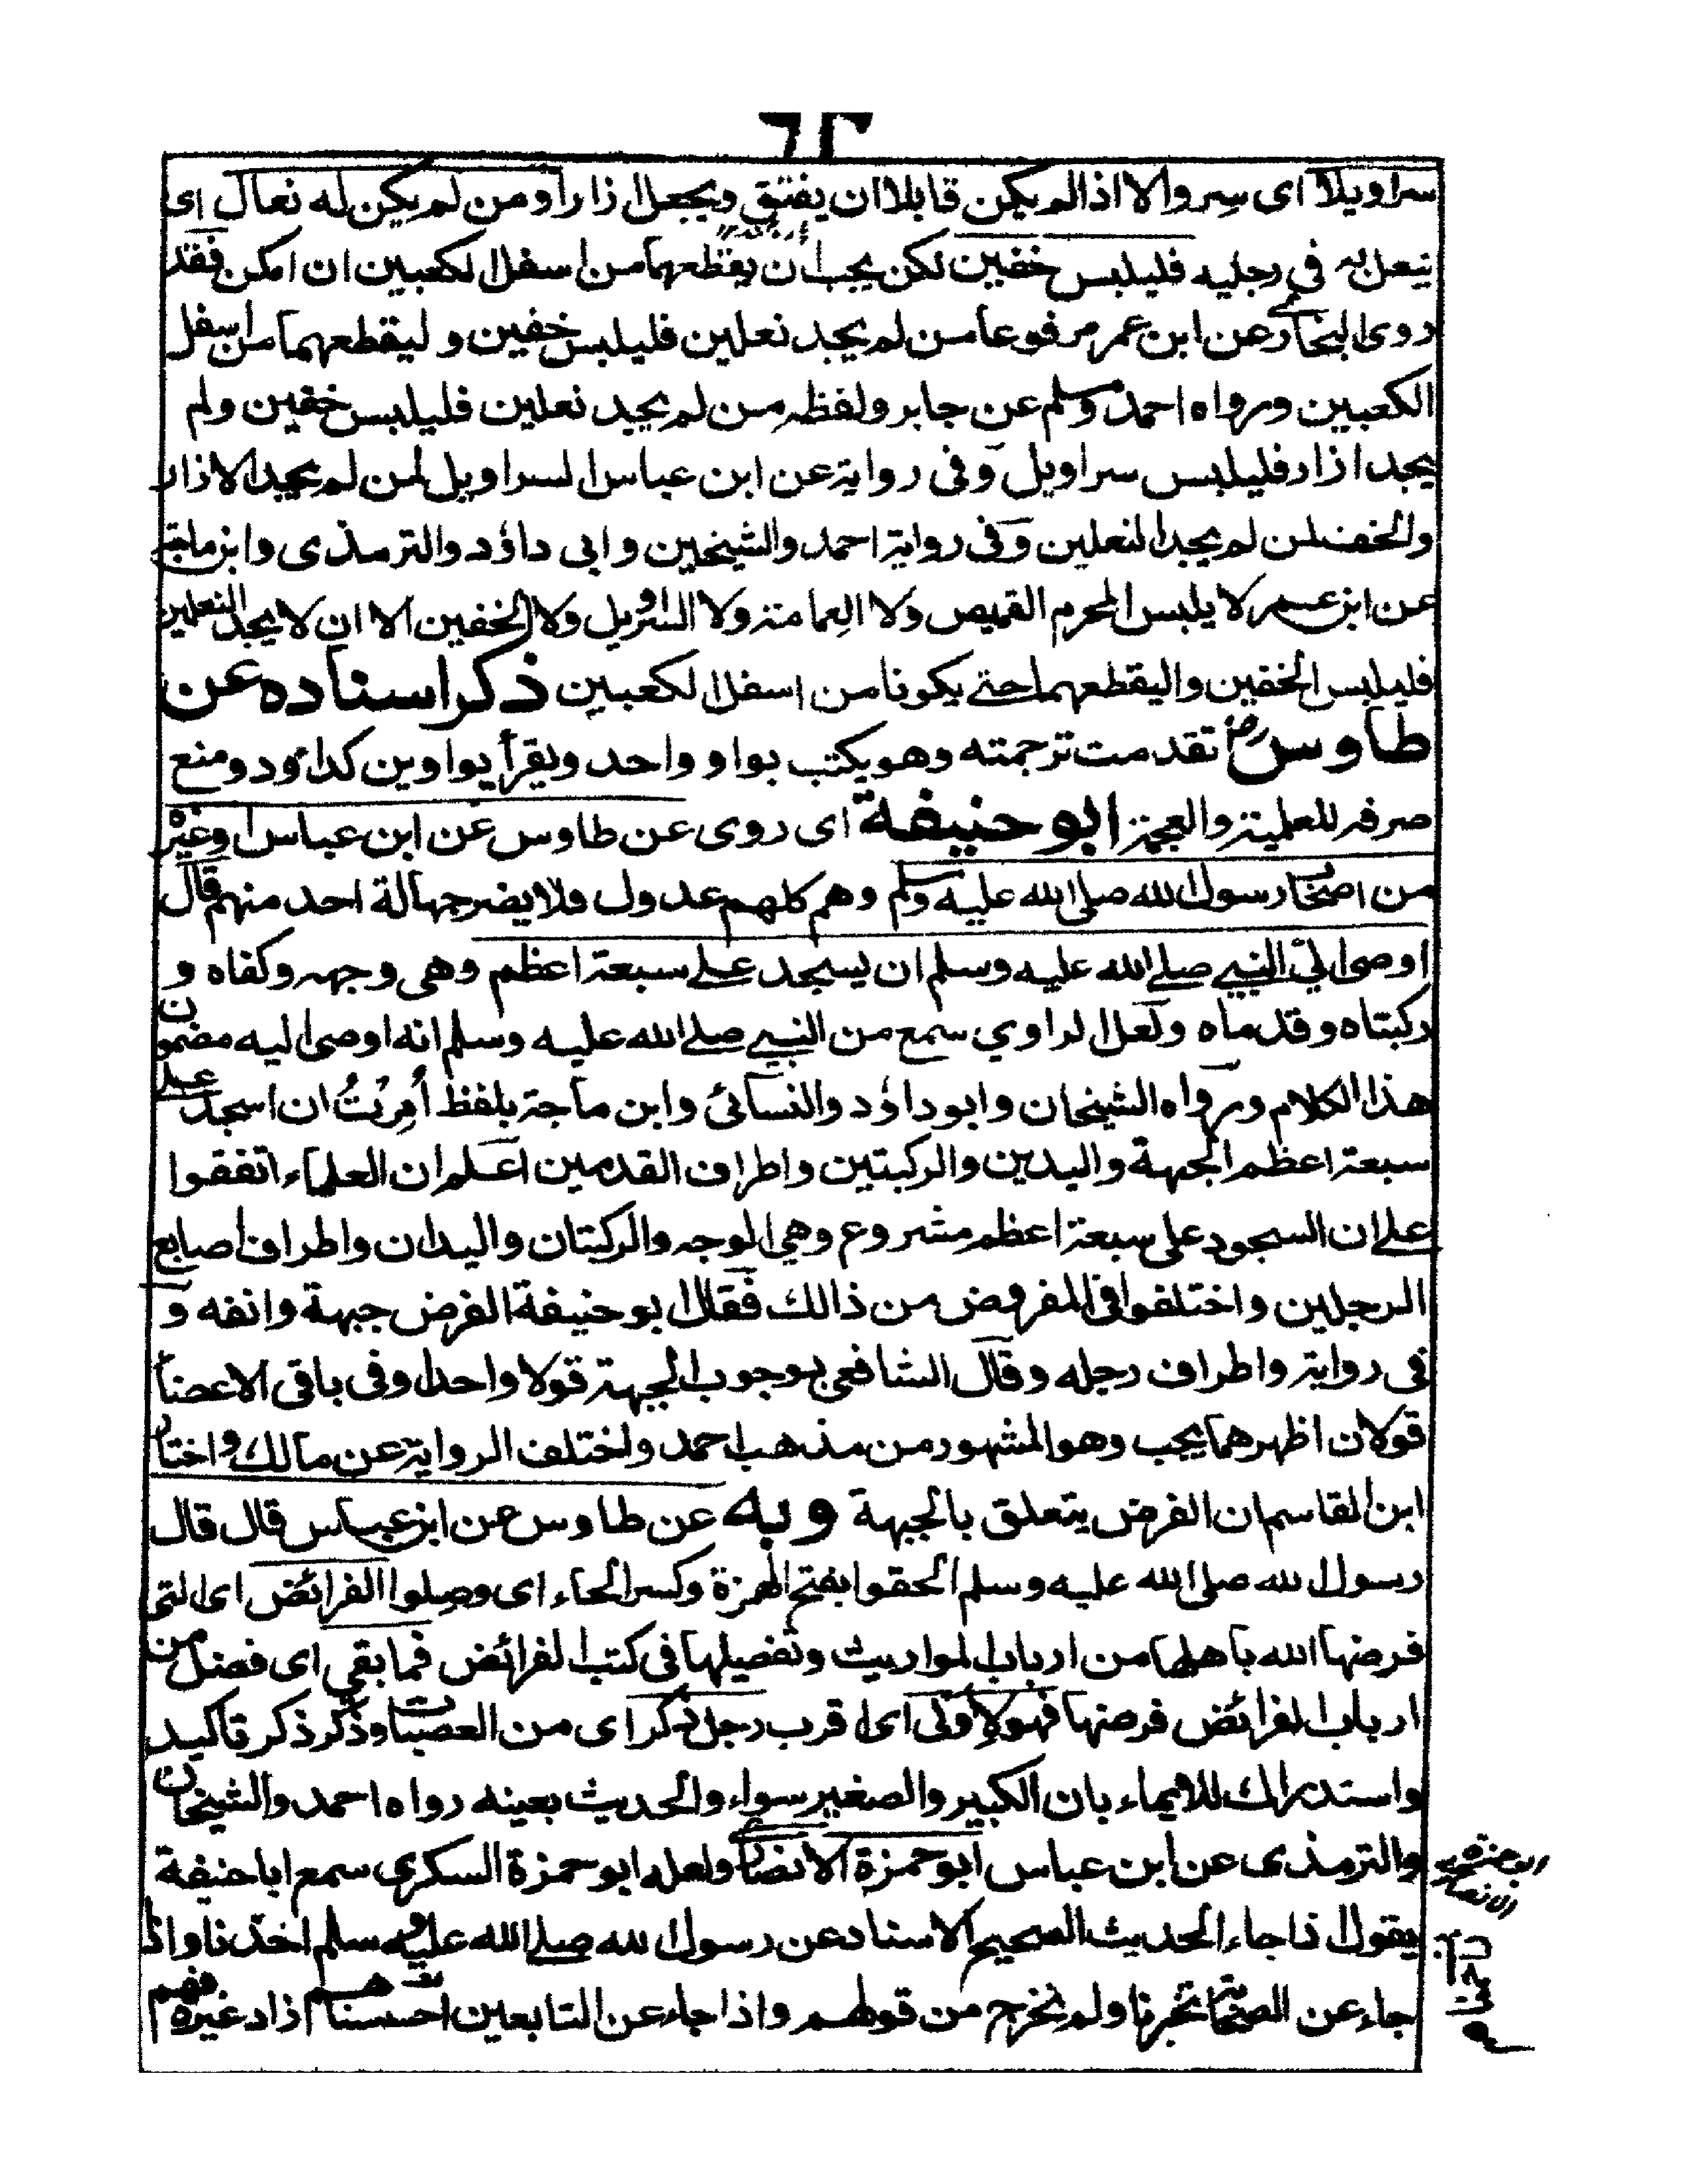 سراويلا اى سروالا اذا لم يكن قابلا ان يفتق ويجعل ازارا ومن لم يكن له نعال اى
نعل له في رجليه فليلبس خفين لكن يجب ان يقطعهما من اسفل الكعبين ان امكن فقد
روى البخارى عن ابن عمر مرفوعا من لم يجد نعلين فليلبس خفين وليقطعهما من اسفل
الكعبين ورواه احمد ومسلم عن جابر ولفظه من لم يجد نعلين فليلبس خفين ولم
يجد ازار فليلبس سراويل وفى رواية عن ابن عباس السراويل لمن لم يجد الازار
والخف لمن لم يجد النعلين وفى رواية احمد والشيخين وابى داؤد والترمذى وابن ماجة
عن ابن عمر لا يلبس المحرم القميص ولا العمامة ولا السراويل ولا الخفين الا ان لا يجد النعلين
فليلبس الخفين واليقطعهما حتى يكونا من اسفل الكعبين ذكر اسناده عن
طاوس رض تقدمت ترجمته وهو يكتب بواو واحد ويقرأ بواوين كداؤد ومنع
صرفه للعلمية والعجمة ابو حنيفة اى روى عن طاوس عن ابن عباس او غيره
من اصحاب رسول الله صلى الله عليه وسلم وهم كلهم عدول ولا يضر جهالة احد منهم قال
اوصى الى النبي صلى الله عليه وسلم ان يسجد على سبعة اعظم وهى وجهه وكفاه و
ركبتاه وقدماه ولعل الراوي سمع من النبي صلى الله عليه وسلم انه اوصى اليه مضمون
هذا الكلام ورواه الشيخان وابو داؤد والنسائى وابن ماجة بلفظ اُمِرْتُ ان اسجد على
سبعة اعظم الجبهة واليدين والركبتين واطراف القدمين اعلم ان العلماء اتفقوا
على ان السجود على سبعة اعظم مشروع وهي الوجه والركبتان واليدان واطراف اصابع
الرجلين واختلفوا فى المفروض من ذالك فقال ابو حنيفة الفرض جبهة وانفه و
فى رواية واطراف رجله وقال الشافعى بوجوب الجبهة قولا واحدا وفى باقى الاعضاء
قولان اظهرهما يجب وهو المشهور من مذهب احمد واختلف الرواية عن مالك واختار
ابن القاسم ان الفرض يتعلق بالجبهة وبه عن طاوس عن ابن عباس قال قال
رسول الله صلى الله عليه وسلم الحقوا بفتح الهمزة وكسر الحاء اى وصلوا الفرائض اى التى
فرضها الله باهلها من ارباب المواريث وتفصيلها فى كتب الفرائض فما بقى اى فضل من
ارباب الفرائض فرضها فهو لاولى اى اقرب رجل ذكر اى من العصبات وذكر ذكر تاكيد
واستدراك للايماء بان الكبير والصغير سواء والحديث بعينه رواه احمد والشيخان
والترمذى عن ابن عباس ابو حمزة الانصارى ولعله ابو حمزة السكرى سمع ابا حنيفة
يقول اذا جاء الحديث الصحيح الاسناد عن رسول الله صلى الله عليه وسلم اخذنا واذا
جاء عن الصحابة تخيرنا ولم نخرج من قولهم واذا جاء عن التابعين زاحمناهم زاد غيره فهم
ابو حمزة
الانصارى